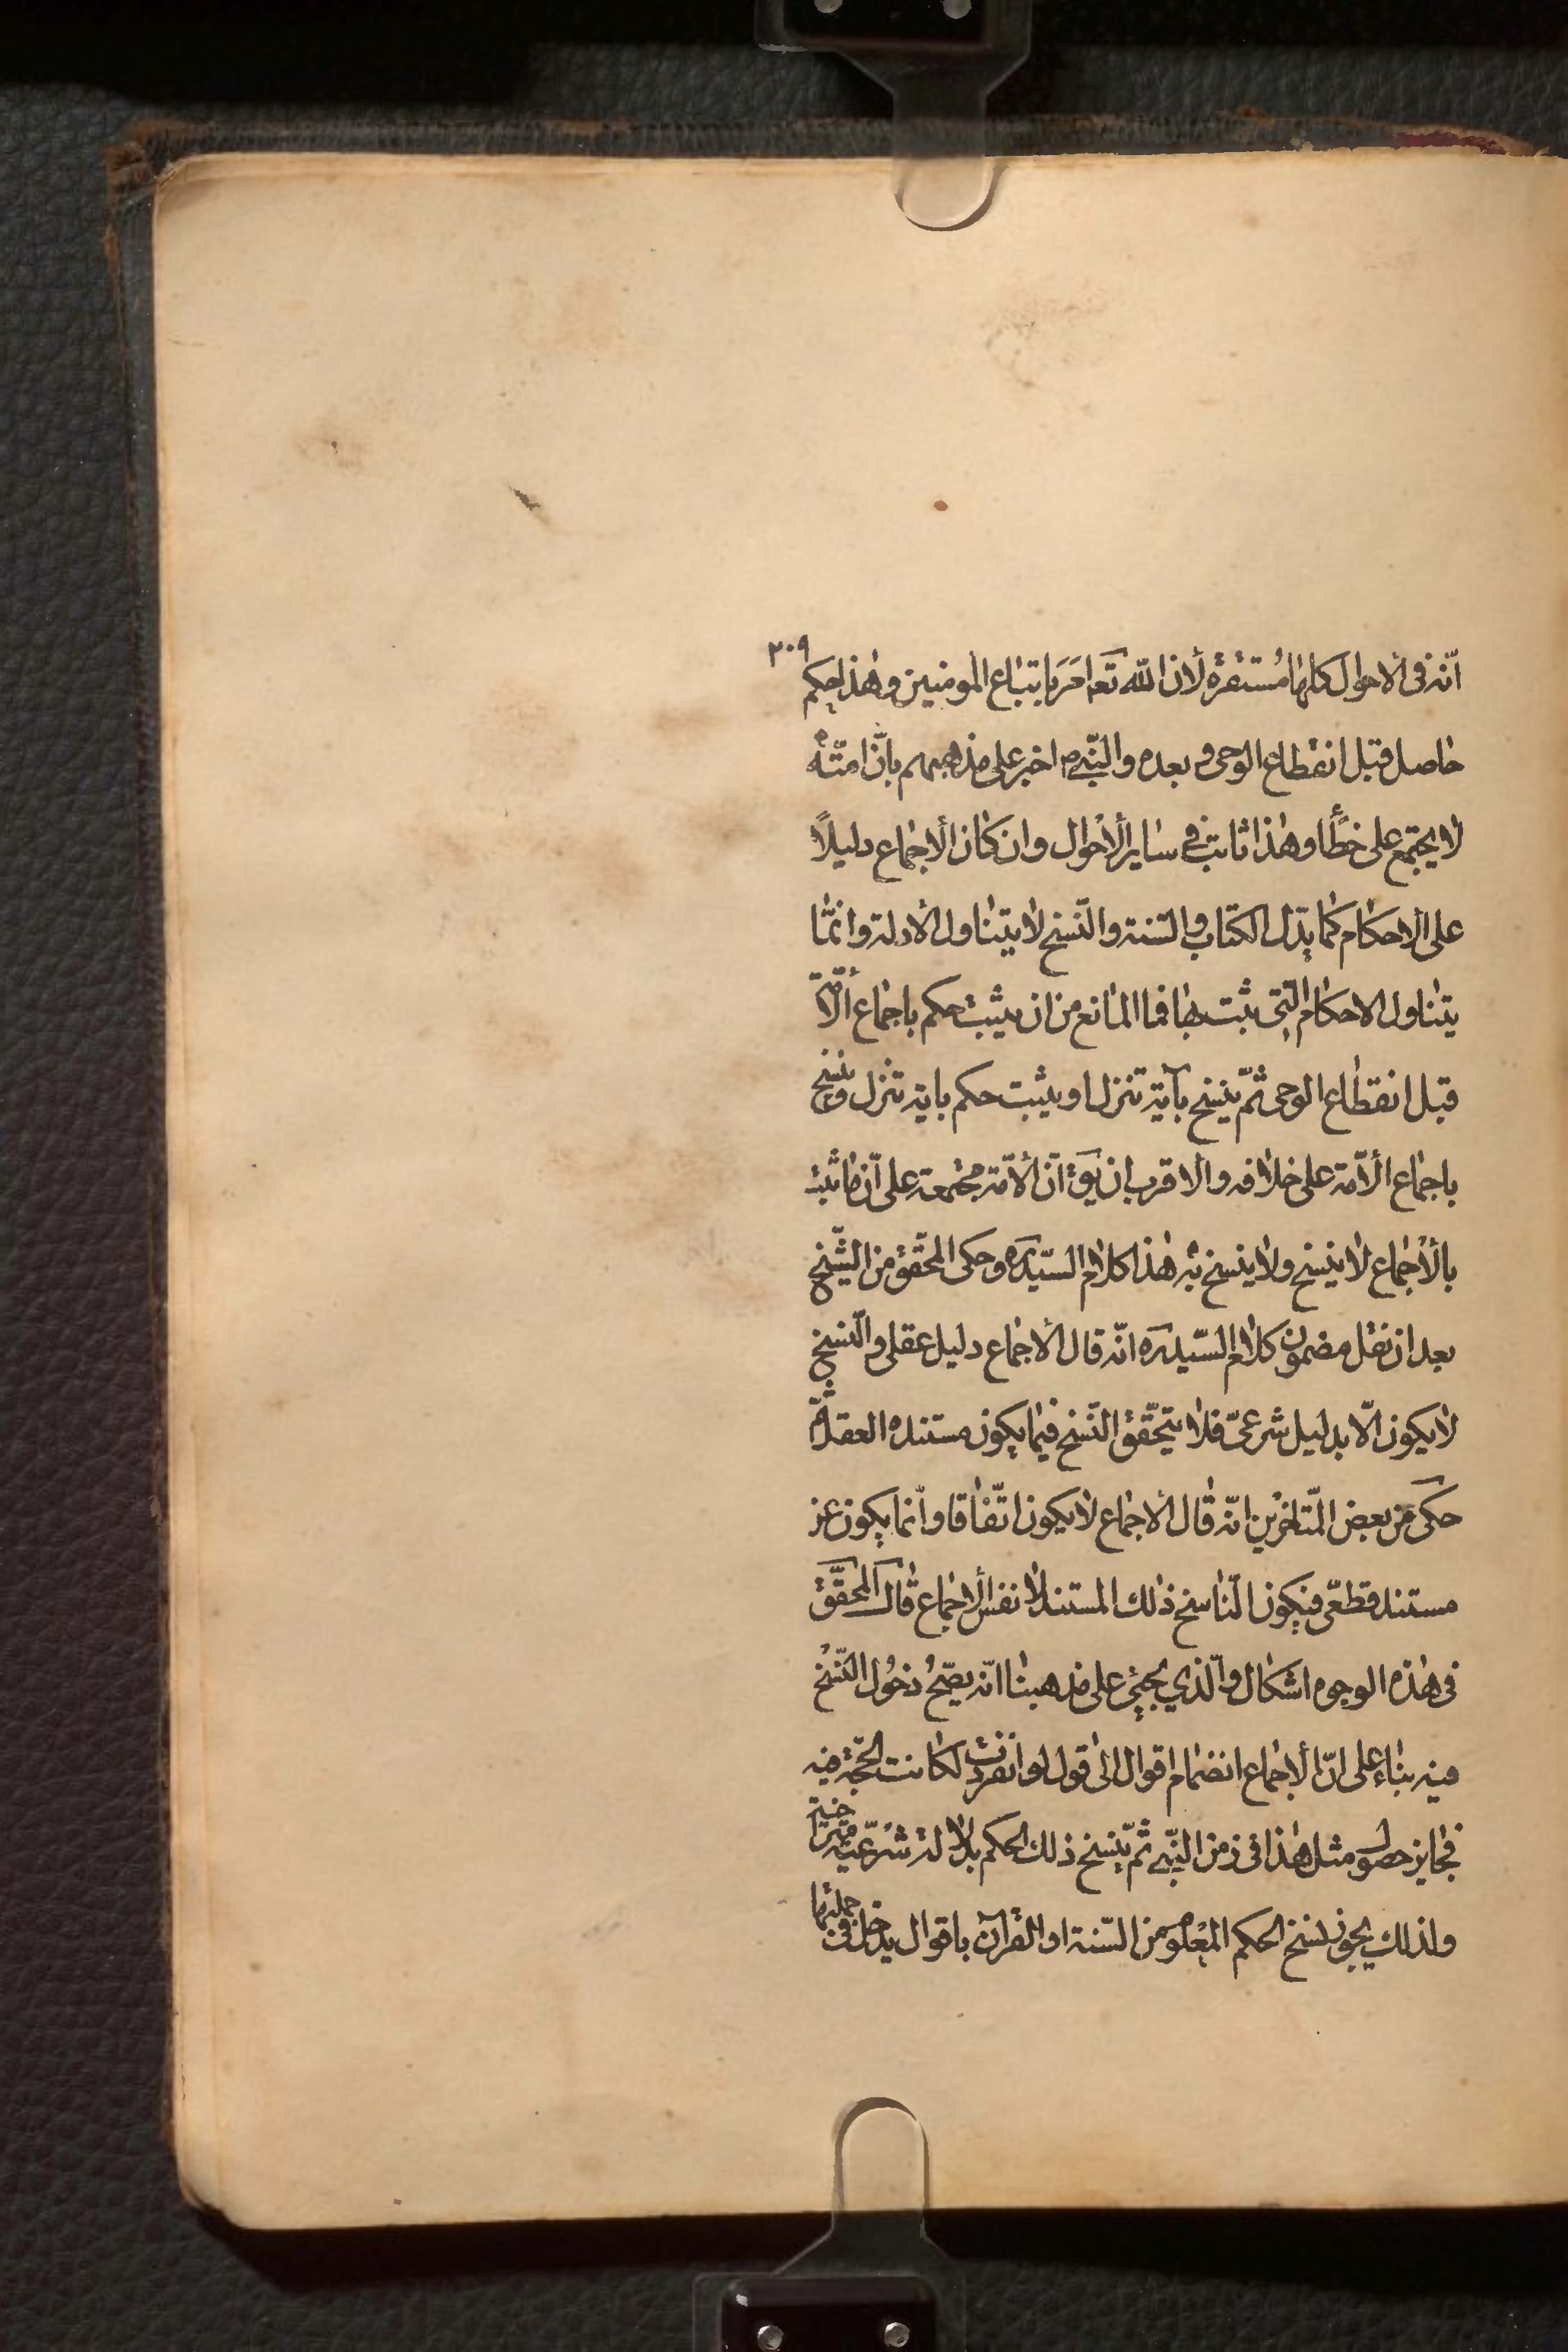 ٢٠٩
انّه فى الاحوال كلهٰا مُستقرة لأن الله تعَا امَرَ باتباع المومنين وهٰذا حكم
حٰاصل قبل انقطٰاع الوحى و بعده والنّبىّ ص اخبر على مذهبهم بانّ امّته
لا يجتمع على خطأ وهٰذا ثابت في سٰاير الأحْوال وان كٰان الاجمٰاع دليلًا
على الاحكام كمٰا يدّل الكتاب والسّنة والنّسخ لا يتنٰاول الادلة وانّمٰا
يتنٰاول الاحكام التّى يثبت بهٰا فما المٰانع من ان يثبت حكم باجمٰاع الأمّة
قبل انقطٰاع الوحى ثمّ ينسخ بآية تنزل او يثبت حكم باية تنزل وينسخ
باجمٰاع الأمّة على خلافه والاقرب ان يقَ انّ الامّة مجتمعة على انّ مٰا ثبت
بالأجمٰاع لا ينسخ ولا ينسخ به هٰذا كلام السيّد ره وحكى المحقّق من الشّيخ
بعد ان نقل مضمون كلام السيّد ره انّه قال الاجمٰاع دليل عقلى والنّسخ
لا يكون الّا بدليل شرعىّ فلا يتحقّق النّسخ فيمٰا يكون مستنده العقل ثمّ
حكى عن بعض المتٰاخرين انّه قٰال الاجمٰاع لا يكون اتّفٰاقا وانّما يكون عن
مستند قطعىّ فيكون النّٰاسخ ذٰلك المستند لا نفس الاجمٰاع قٰال المحَقّق
فى هٰذه الوجوه اشكٰال والّذي يجيئ على مذهبنٰا انّه يصّحُ دخُول النّسْخ
فيه بنٰاء على انّ الأجمٰاع انضمٰام اقوال الىٰ قول لو انفردت لكانت الحجّة فيه
فجٰايز حصول مثل هٰذا فى زمن النّبى ثم ينسخ ذلك الحكم بدلالة شرْعّية متراخية
ولذلك يجوز نسخ الحكم المعْلوم من السّنة او القرآن باقوال يدخل فى جملتهٰا